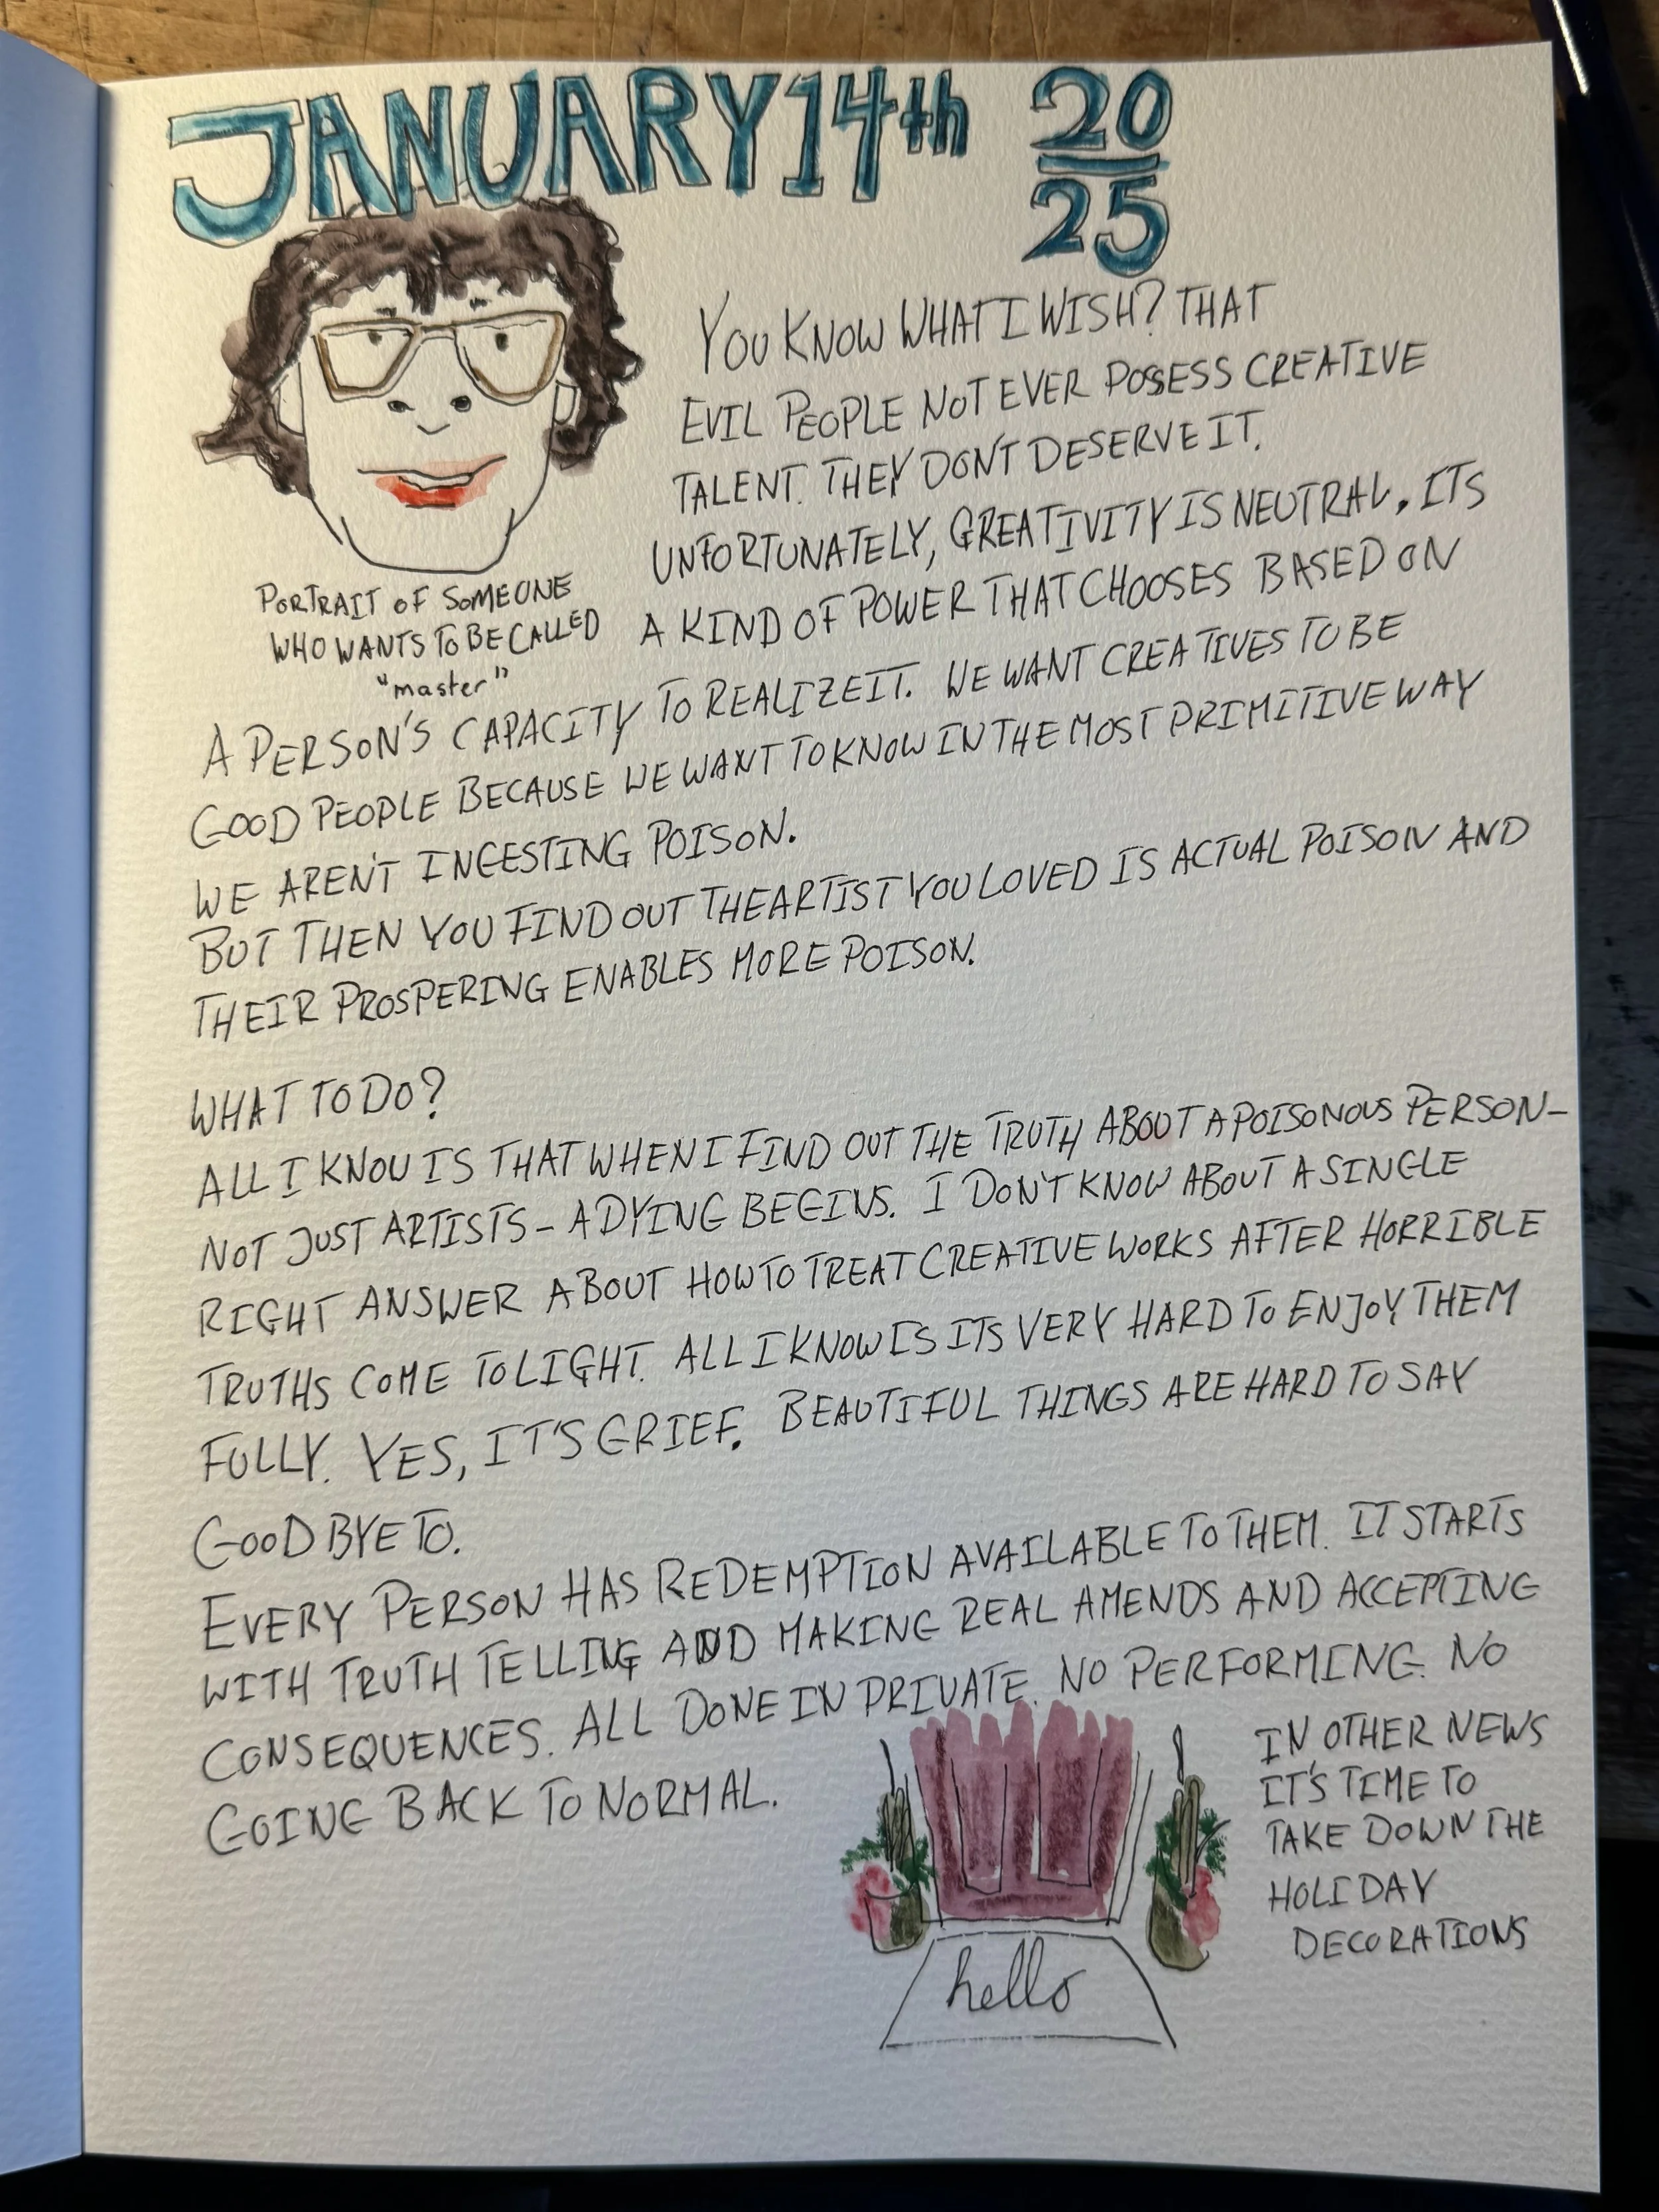 JANUARY 14th 20
25
YOU KNOW WHAT I WISH? THAT
EVIL PEOPLE NOT EVER POSSESS CREATIVE
TALENT. THEY DON'T DESERVE IT.
UNFORTUNATELY, CREATIVITY IS NEUTRAL. ITS
A KIND OF POWER THAT CHOOSES BASED ON
PORTRAIT OF SOMEONE
WHO WANTS TO BE CALLED
"master"
A PERSON'S CAPACITY TO REALIZE IT. WE WANT CREATIVES TO BE
GOOD PEOPLE BECAUSE WE WANT TO KNOW IN THE MOST PRIMITIVE WAY
WE AREN'T INGESTING POISON.
BUT THEN YOU FIND OUT THE ARTIST YOU LOVED IS ACTUAL POISON AND
THEIR PROSPERING ENABLES MORE POISON.
WHAT TO DO?
ALL I KNOW IS THAT WHEN I FIND OUT THE TRUTH ABOUT A POISONOUS PERSON–
NOT JUST ARTISTS – A DYING BEGINS. I DON'T KNOW ABOUT A SINGLE
RIGHT ANSWER ABOUT HOW TO TREAT CREATIVE WORKS AFTER HORRIBLE
TRUTHS COME TO LIGHT. ALL I KNOW IS ITS VERY HARD TO ENJOY THEM
FULLY. YES, IT'S GRIEF. BEAUTIFUL THINGS ARE HARD TO SAY
GOODBYE TO.
EVERY PERSON HAS REDEMPTION AVAILABLE TO THEM. IT STARTS
WITH TRUTH TELLING AND MAKING REAL AMENDS AND ACCEPTING
CONSEQUENCES. ALL DONE IN PRIVATE. NO PERFORMING. NO
GOING BACK TO NORMAL.
IN OTHER NEWS
IT'S TIME TO
TAKE DOWN THE
HOLIDAY
DECORATIONS
hello